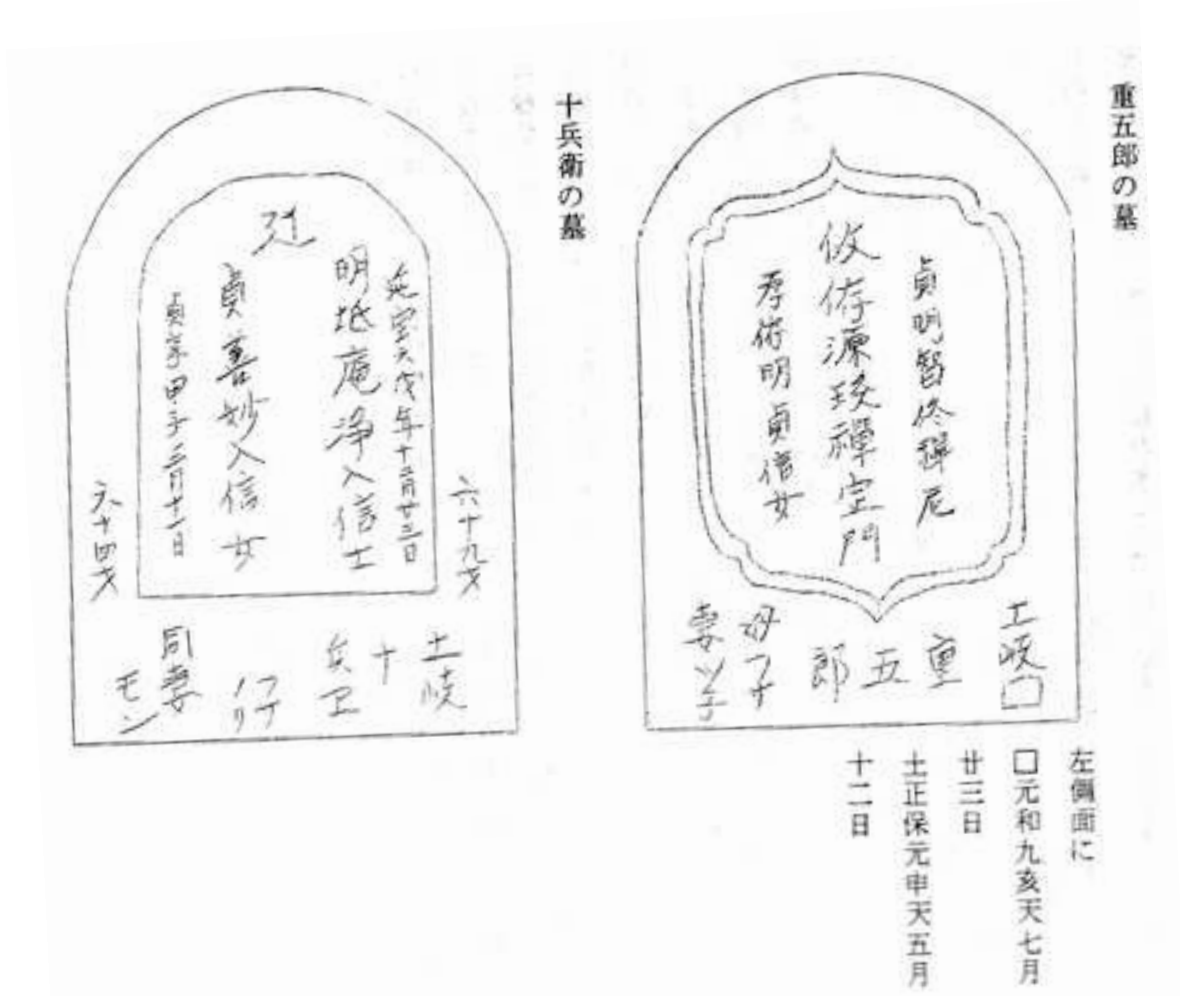 重五郎の墓
貞明智侎禅尼
攸侟源珱禅定門
孝侟明貞信女
土岐□
重
五
郎
母フサ
妻ツ子
左側面に
□元和九亥天七月
廿三日
土正保元申天五月
十二日
十兵衛の墓
六十九才
延宝六戊年十二月廿三日
明坻庵浄入信士
貞善妙入信女
貞享甲子三月十一日
六十四才
土岐
十
兵卫
同妻
モン